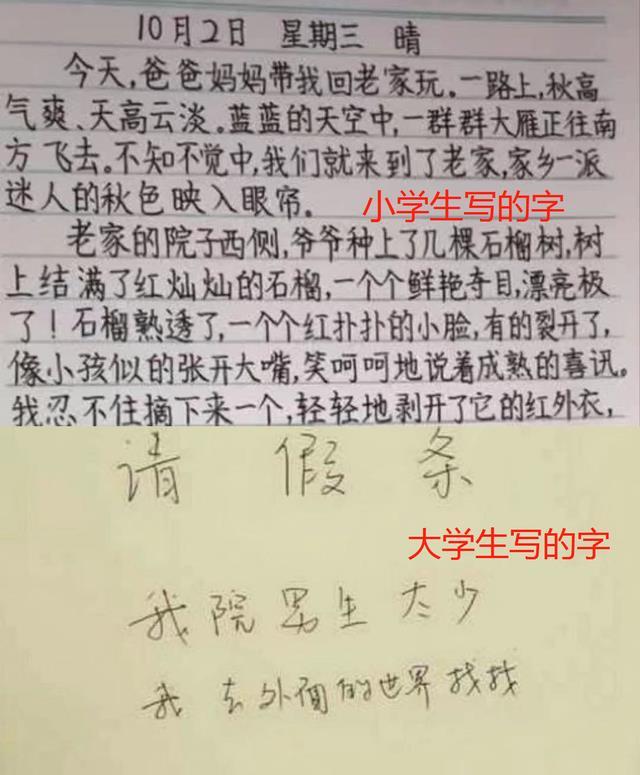 10月2日 星期三 晴
今天,爸爸妈妈带我回老家玩。一路上,秋高
气爽、天高云淡。蓝蓝的天空中,一群群大雁正往南
方飞去。不知不觉中,我们就来到了老家,家乡一派
迷人的秋色映入眼帘。
小学生写的字
老家的院子西侧,爷爷种上了几棵石榴树,树
上结满了红灿灿的石榴,一个个鲜艳夺目,漂亮极
了!石榴熟透了,一个个红扑扑的小脸,有的裂开了,
像小孩似的张开大嘴,笑呵呵地说着成熟的喜讯。
我忍不住摘下来一个,轻轻地剥开了它的红外衣,
请假条
大学生写的字
我院男生太少
我去外面的世界找找